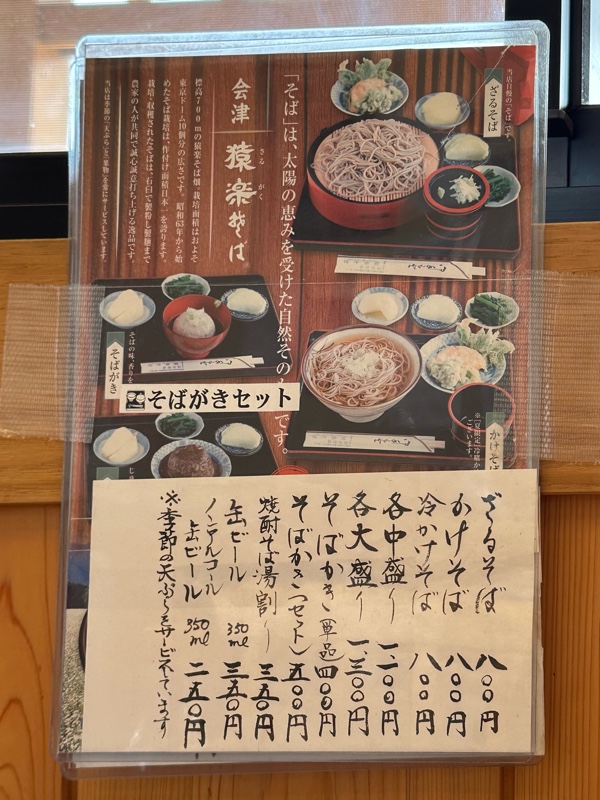 当店自慢の「そば」です。
ざるそば
「そば」は、太陽の恵みを受けた自然その
です。
会津
猿楽そば
さる
がく
標高700mの猿楽そば畑。栽培面積はおよそ
東京ドーム10個分の広さです。昭和63年から始
めたそば栽培は、作付け面積日本一を誇ります。
栽培・収穫されたそばは、石臼で製粉し製麺まで
農家の人が共同で誠心誠意打ち上げる逸品です。
当店は季節の「天ぷら」と「果物」を常にサービスしています。
かけそば
そばの味、香りを
そばがき
そばがきセット
ざるそば 八〇〇円
かけそば 八〇〇円
冷かけそば 八〇〇円
各中盛り 一、一〇〇円
各大盛り 一、三〇〇円
そばがき(単品) 四〇〇円
そばがき(セット) 五〇〇円
焼酎そば湯割り 三五〇円
缶ビール 350ml 三五〇円
ノンアルコール
缶ビール 350ml 二五〇円
※季節の天ぷらをサービスしています